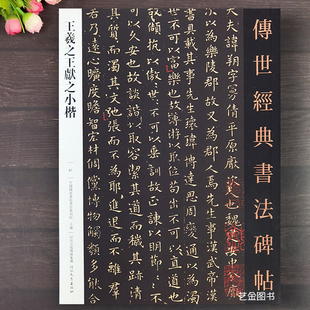 傳世經典書法碑帖
大夫諱朔字曼倩平原厭次人也魏建安中分厭
次以為樂陵郡故又為郡人焉先生事漢武帝漢
書具載其事先生瓌瑋博達思
不可以富樂也故薄游以取位苟出不可以直道
也故頡頏以傲世傲世不可以垂訓故正諫以明
不可以久安也故談諧以取容潔其道而穢其跡清
其質而濁其文弛張而不為耶進退而不離群
若乃遠心曠度瞻智宏材倜儻博物觸類多能合
王羲之王獻之小楷
艺金图书